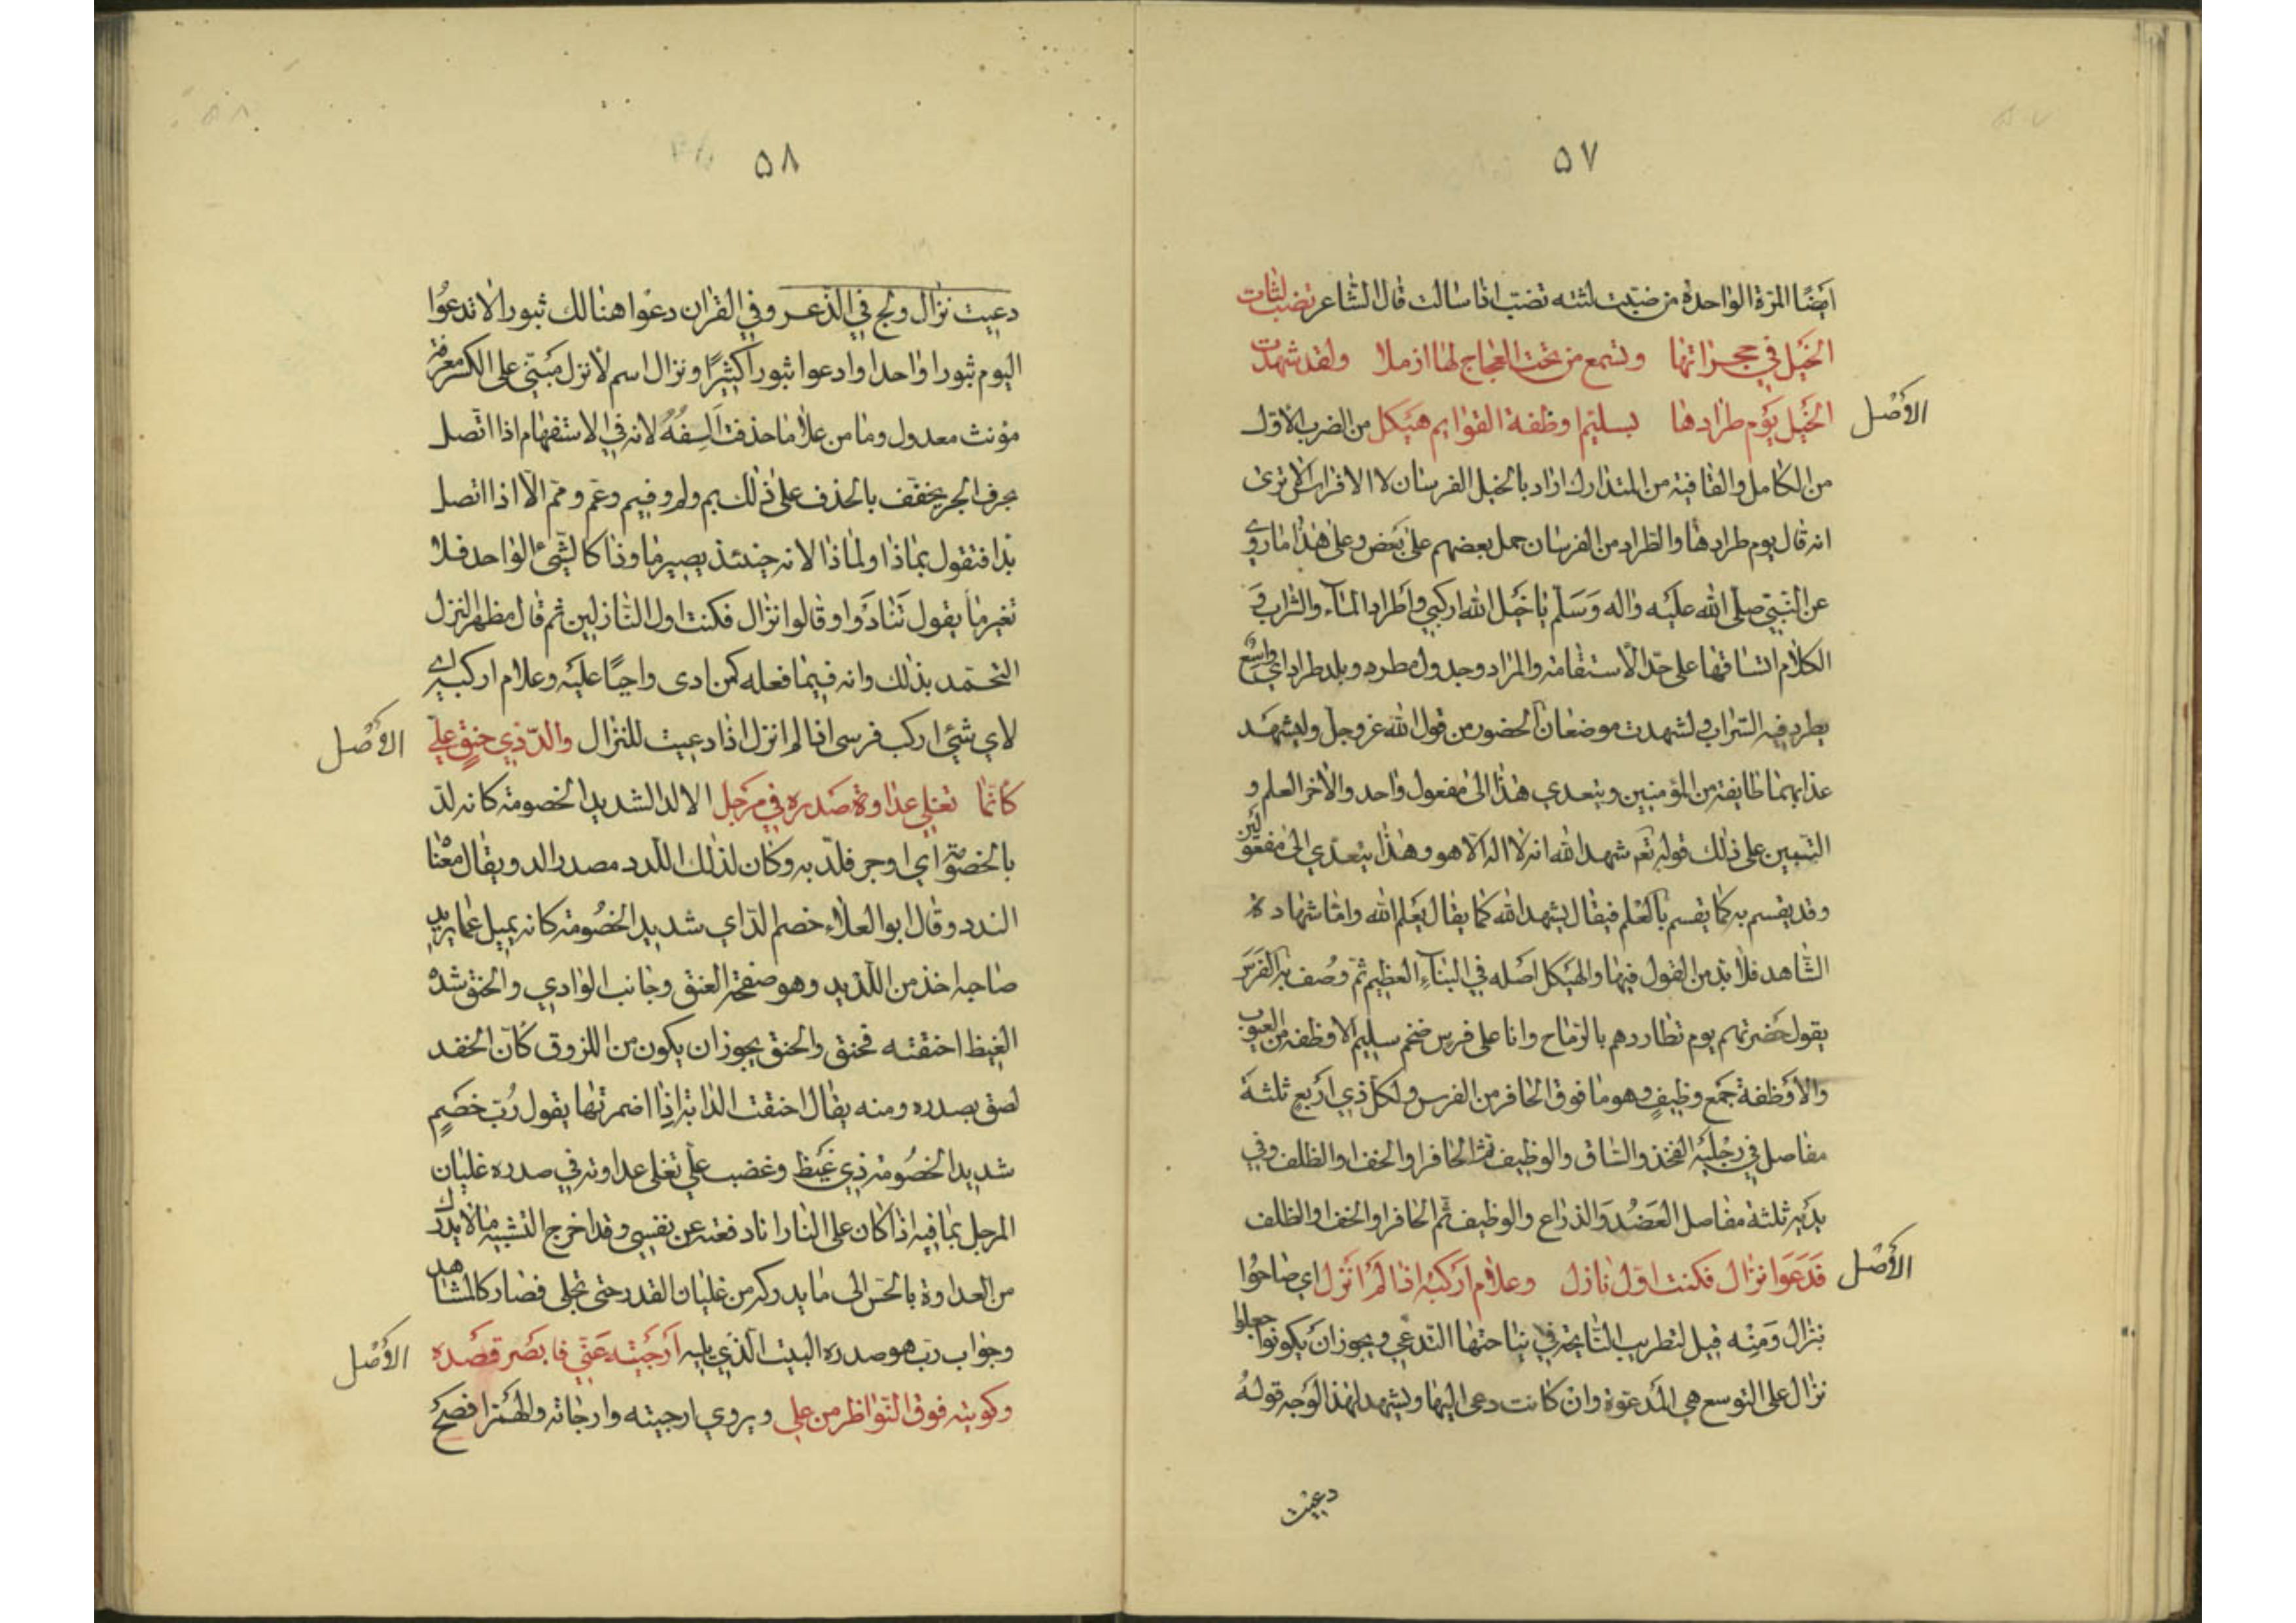 ۵۷
أيضًا المرّة الواحدة من ضبّت لثته تضبّ اذا سالت قال الشاعر تضب لثات
الخيل في حجراتها وتسمع من تحت العجاج لها ازملا ولقد شهدت
الأصل
الخيل يوم طرادها بسليم اوظفة القوايم هيكل من الضرب الأول
من الكامل والقافية من المتدارك اراد بالخيل الفرسان لا الافراس الا ترى
انه قال يوم طرادها والطراد من الفرسان حمل بعضهم على بعض وعلى هذا ما روي
عن النبي صلى الله عليه واله وسلم يا خيل الله اركبي واطراد الماء والتراب و
الكلام اتساقها على حد الاستقامة والمراد وجدول مطرد وبلد طراد اي واسع
يطرد فيه السراب ولشهدت موضعان الحضور من قول الله عز وجل وليشهد
عذابهما طايفة من المؤمنين ويتعدي هذا الى مفعول واحد والأخر العلم و
التبيين على ذلك قوله تعم شهد الله انه لا اله الا هو وهذا يتعدي الى مفعولين
وقد يقسم به كما يقسم بالعلم فيقال يشهد الله كما يقال يعلم الله واما شهادة
الشاهد فلا بد من القول فيها والهيكل اصله في البناء العظيم ثم وصف به الفرس
يقول حضرتهم يوم تطاردهم بالرماح وانا على فرس ضخم سليم الاوظفة من العيوب
والأوظفة جمع وظيف وهو ما فوق الحافر من الفرس ولكل ذي اربع ثلثة
مفاصل في رجليه الفخذ والساق والوظيف ثم الحافر او الخف او الظلف وفي
يديه ثلثة مفاصل العضد والذراع والوظيف ثم الحافر او الخف او الظلف
الأصل
فدعوا نزال فكنت اول نازل وعلام اركبه اذا لم انزل اي صاحوا
بنزال ومنه قيل لتطريب النايحة في نياحتها التدعي ويجوز ان يكونوا جعلوا
نزال على التوسع هي المدعوة وان كانت دعى اليها ويشهد لهذا الوجه قوله
دعيت
۵۸
دعيت نزال ولج في الذعر وفي القران دعوا هنالك ثبورا لا تدعوا
اليوم ثبورا واحدا وادعوا ثبورا كثيرًا ونزال اسم لأنزل مبني على الكسر معرفة
مؤنث معدول وما من علاما حذفت الفه لانه في الاستفهام اذا اتصل
بحرف الجر يخفف بالحذف على ذلك بم ولم وفيم وعم ومم الا اذا اتصل
بذا فتقول بماذا ولماذا لانه حينئذ يصير ما وذا كالشيء الواحد فلا
تغير ما يقول تنادوا وقالوا نزال فكنت اول النازلين ثم قال مظهرا لنزل
التحمد بذلك وانه فيما فعله كمن ادى واجبًا عليه وعلام اركبه اي
لاي شيء اركب فرسى اذا لم انزل اذا دعيت للنزال والدّ ذي حنق علي
الأصل
كأنما تغلي عداوة صدره في مرجل الالد الشديد الخصومة كانه لد
بالخصومة اي اوجر فلد به وكان لذلك اللدد مصدر الد ويقال معنا
الندد وقال ابو العلاء خصم الد اي شديد الخصومة كانه يميل عما يريد
صاحبه اخذ من اللديد وهو صفحة العنق وجانب الوادي والحنق شدة
الغيظ احنقته فحنق والحنق يجوز ان يكون من اللزوق كأن الحقد
لصق بصدره ومنه يقال احنقت الدابة اذا اضمرتها يقول رب خصم
شديد الخصومة ذي غيظ وغضب علي تغلى عداوته في صدره غليان
المرجل بما فيه اذا كان على النار انا دفعته عن نفسي وقد اخرج التشبيه ما لا يدرك
من العداوة بالحس الى ما يدركه من غليان القدر حتى تجلى فصار كالمشاهد
وجواب رب هو صدره البيت الذي يليه أرجيته عني فابصر قصده
الأصل
وكويته فوق النواظر من علي ويروي ارجيته وارجاته والهمز افصح